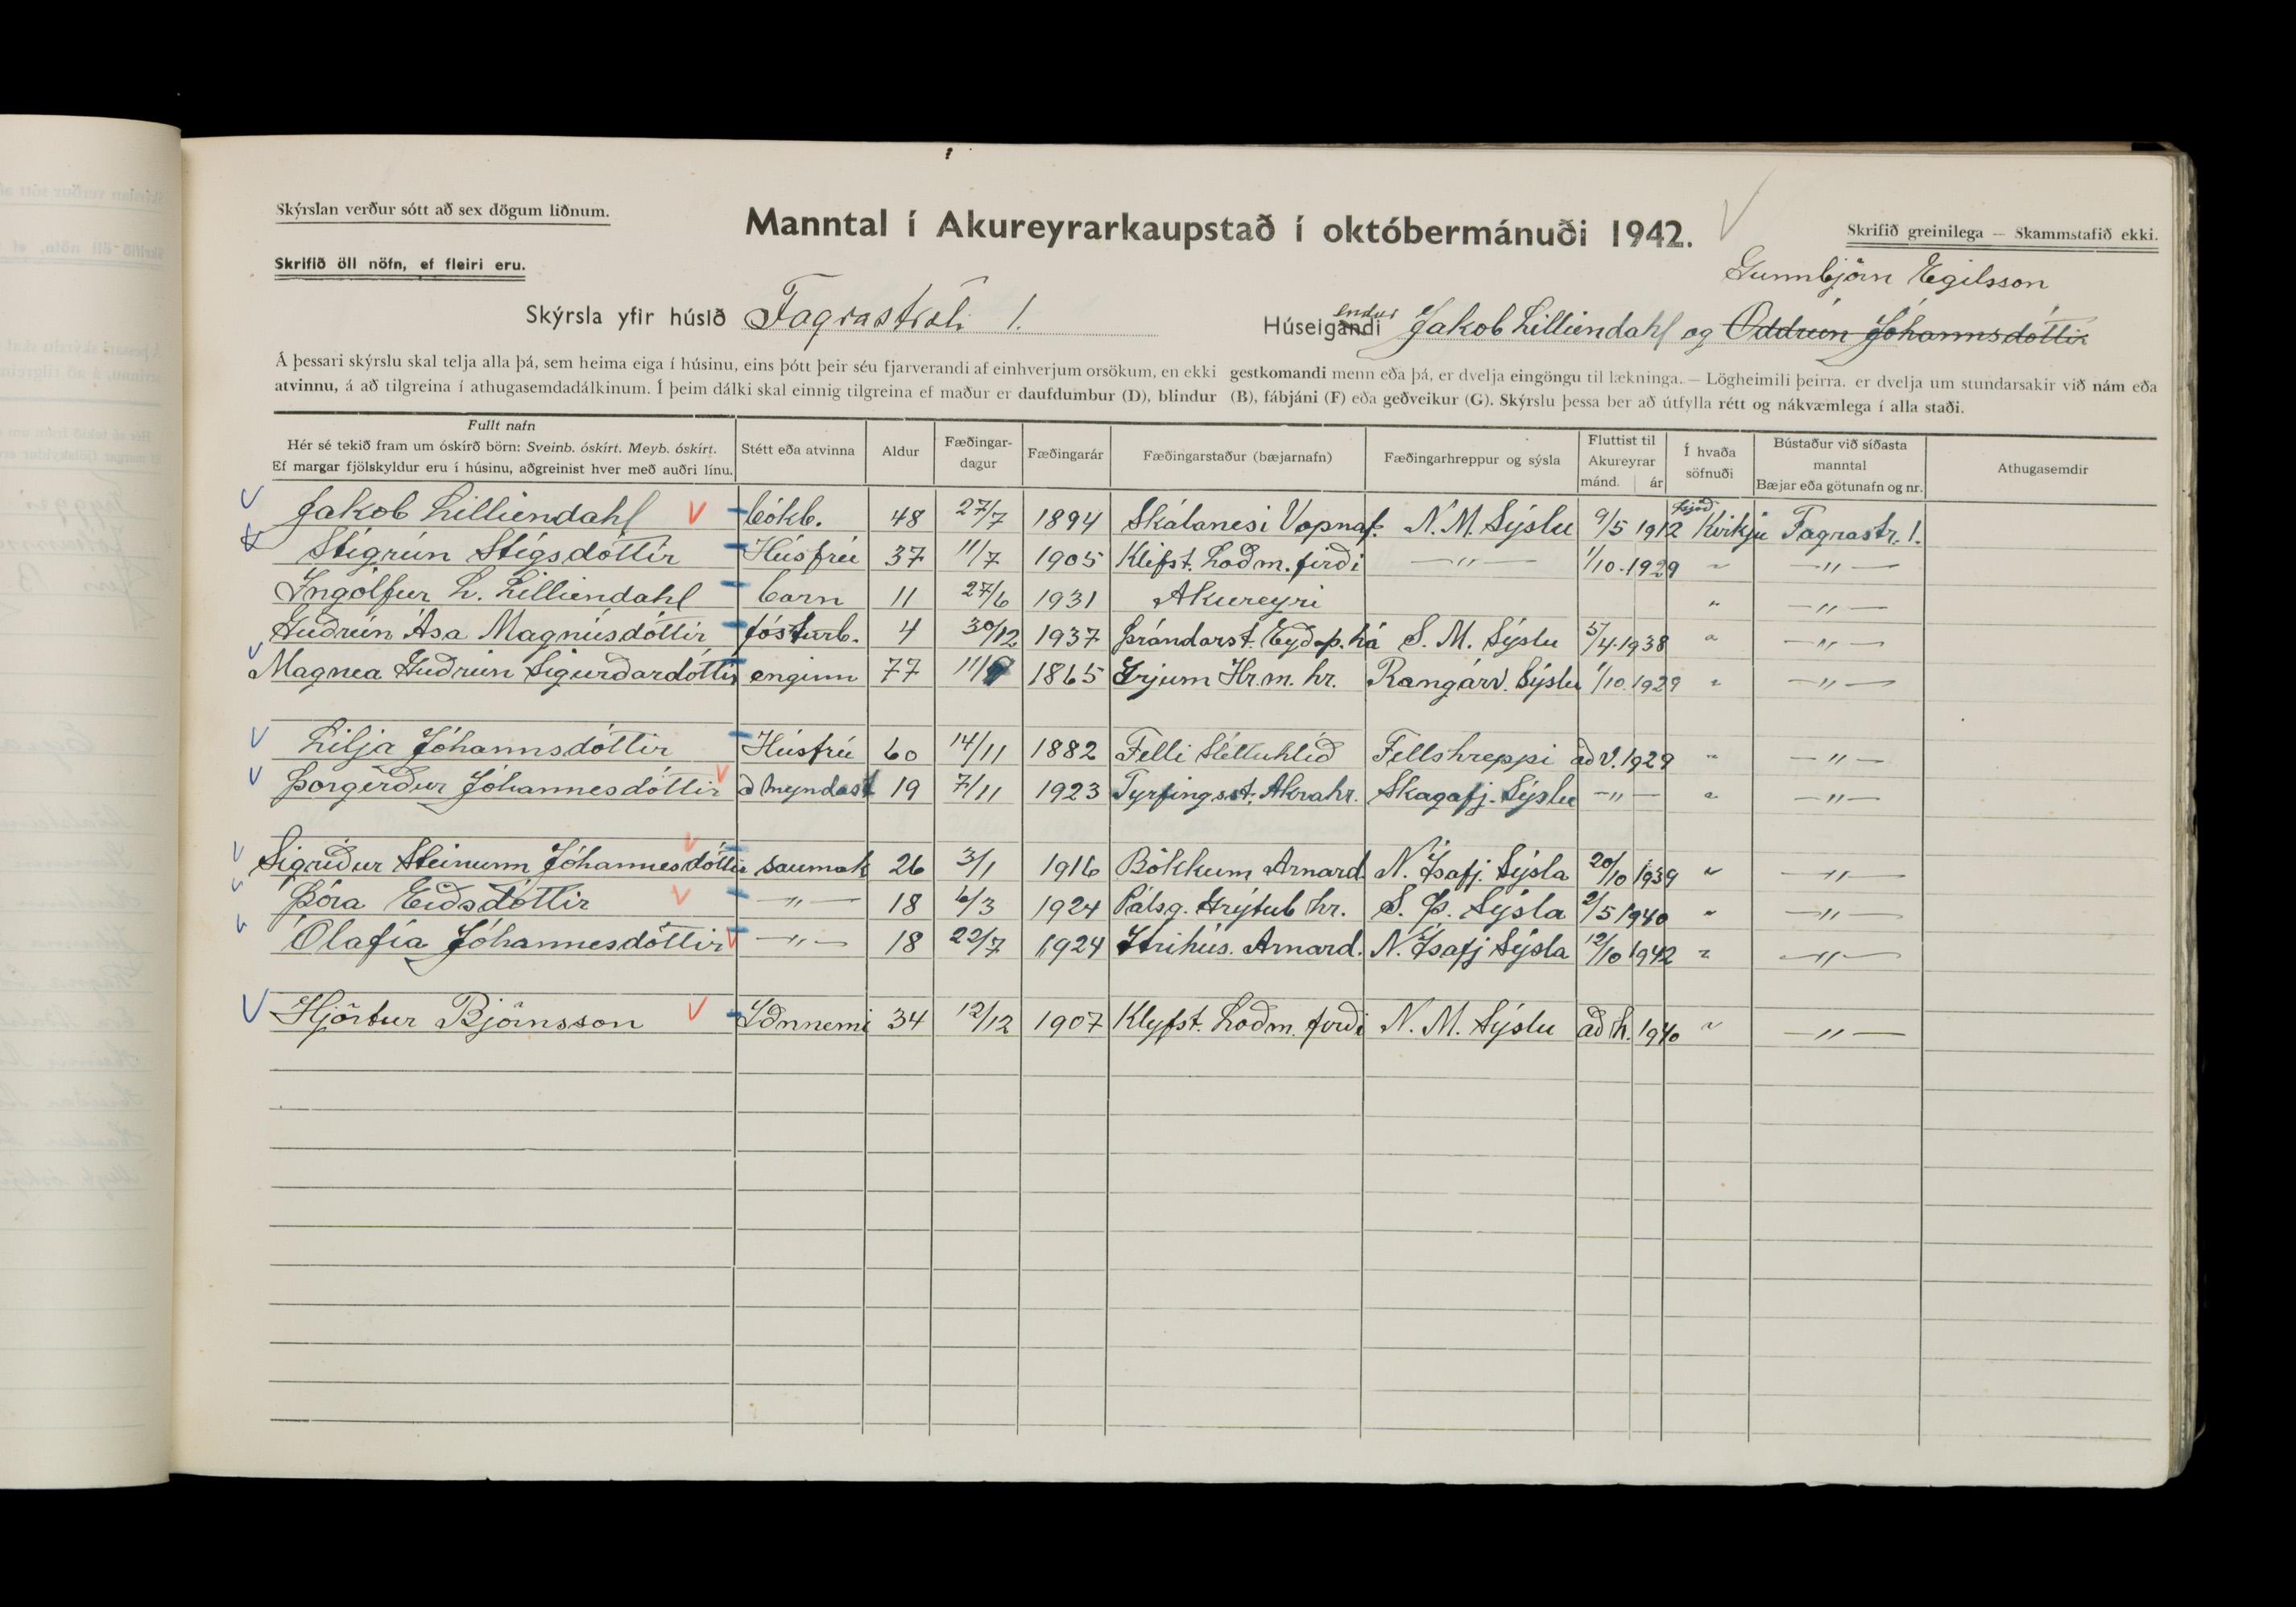 Skýrslan verður sótt að sex dögum liðnum.
Manntal í Akureyrarkaupstað í októbermánuði 1942.
Skrifið greinilega — Skammstafið ekki.
Skrifið öll nöfn, ef fleiri eru.
Gunnbjörn Egilsson
Skýrsla yfir húsið Fagrastræti 1.
Húseigandi endur Jakob Lilliendahl og Oddrún Jóhannsdóttir
Á þessari skýrslu skal telja alla þá, sem heima eiga í húsinu, eins þótt þeir séu fjarverandi af einhverjum orsökum, en ekki gestkomandi menn eða þá, er dvelja eingöngu til lækninga. — Lögheimili þeirra. er dvelja um stundarsakir við nám eða
atvinnu, á að tilgreina í athugasemdadálkinum. Í þeim dálki skal einnig tilgreina ef maður er daufdumbur (D), blindur (B), fábjáni (F) eða geðveikur (G). Skýrslu þessa ber að útfylla rétt og nákvæmlega í alla staði.
Fullt nafn
Hér sé tekið fram um óskírð börn: Sveinb. óskírt. Meyb. óskírt.
Ef margar fjölskyldur eru í húsinu, aðgreinist hver með auðri línu.
Stétt eða atvinna
Aldur
Fæðingar-
dagur
Fæðingarár
Fæðingarstaður (bæjarnafn)
Fæðingarhreppur og sýsla
Fluttist til
Akureyrar
mánd. ár
Í hvaða
söfnuði
Bústaður við síðasta
manntal
Bæjar eða götunafn og nr.
Athugasemdir
Jakob Lilliendahl bókb. 48 27/7 1894 Skálanesi Vopnaf. N. M. Sýslu 9/5 1912 Þjóð Kirkju Fagrastr. 1.
Stígrún Stígsdóttir Húsfrú 37 11/7 1905 Klifst. Loðm.firði —"— 1/10.1929 " —"—
Ingólfur L. Lilliendahl barn 11 27/6 1931 Akureyri " —"—
Guðrún Ása Magnúsdóttir fósturb. 4 30/12 1937 Þrándarst. Eyðaþ.há S. M. Sýslu 5/4.1938 " —"—
Magnea Guðrún Sigurðardóttir enginn 77 11/9 1865 Grjum Hr.m. hr. Rangárv. Sýslu 1/10.1929 " —"—
Lilja Jóhannsdóttir Húsfrú 60 14/11 1882 Felli Sléttuhlíð Fellshreppi að V. 1929 " —"—
Þorgerður Jóhannesdóttir á myndast 19 7/11 1923 Tyrfingsst. Akrahr. Skagafj. Sýslu —"— " —"—
Sigríður Steinunn Jóhannesdóttir saumak 26 3/1 1916 Bökkum Arnard. N. Ísafj. Sýsla 20/10 1939 " —"—
Þóra Eiðsdóttir —"— 18 6/3 1924 Pálsg. Grýtub hr. S. Þ. Sýsla 2/5 1940 " —"—
Ólafía Jóhannesdóttir —"— 18 22/7 1924 Arnard. N. Ísafj Sýsla 12/10 1942 " —"—
Hjörtur Björnsson Iðnnemi 34 12/12 1907 Klyfst. Loðm. firði N. M. Sýslu að h. 1940 " —"—